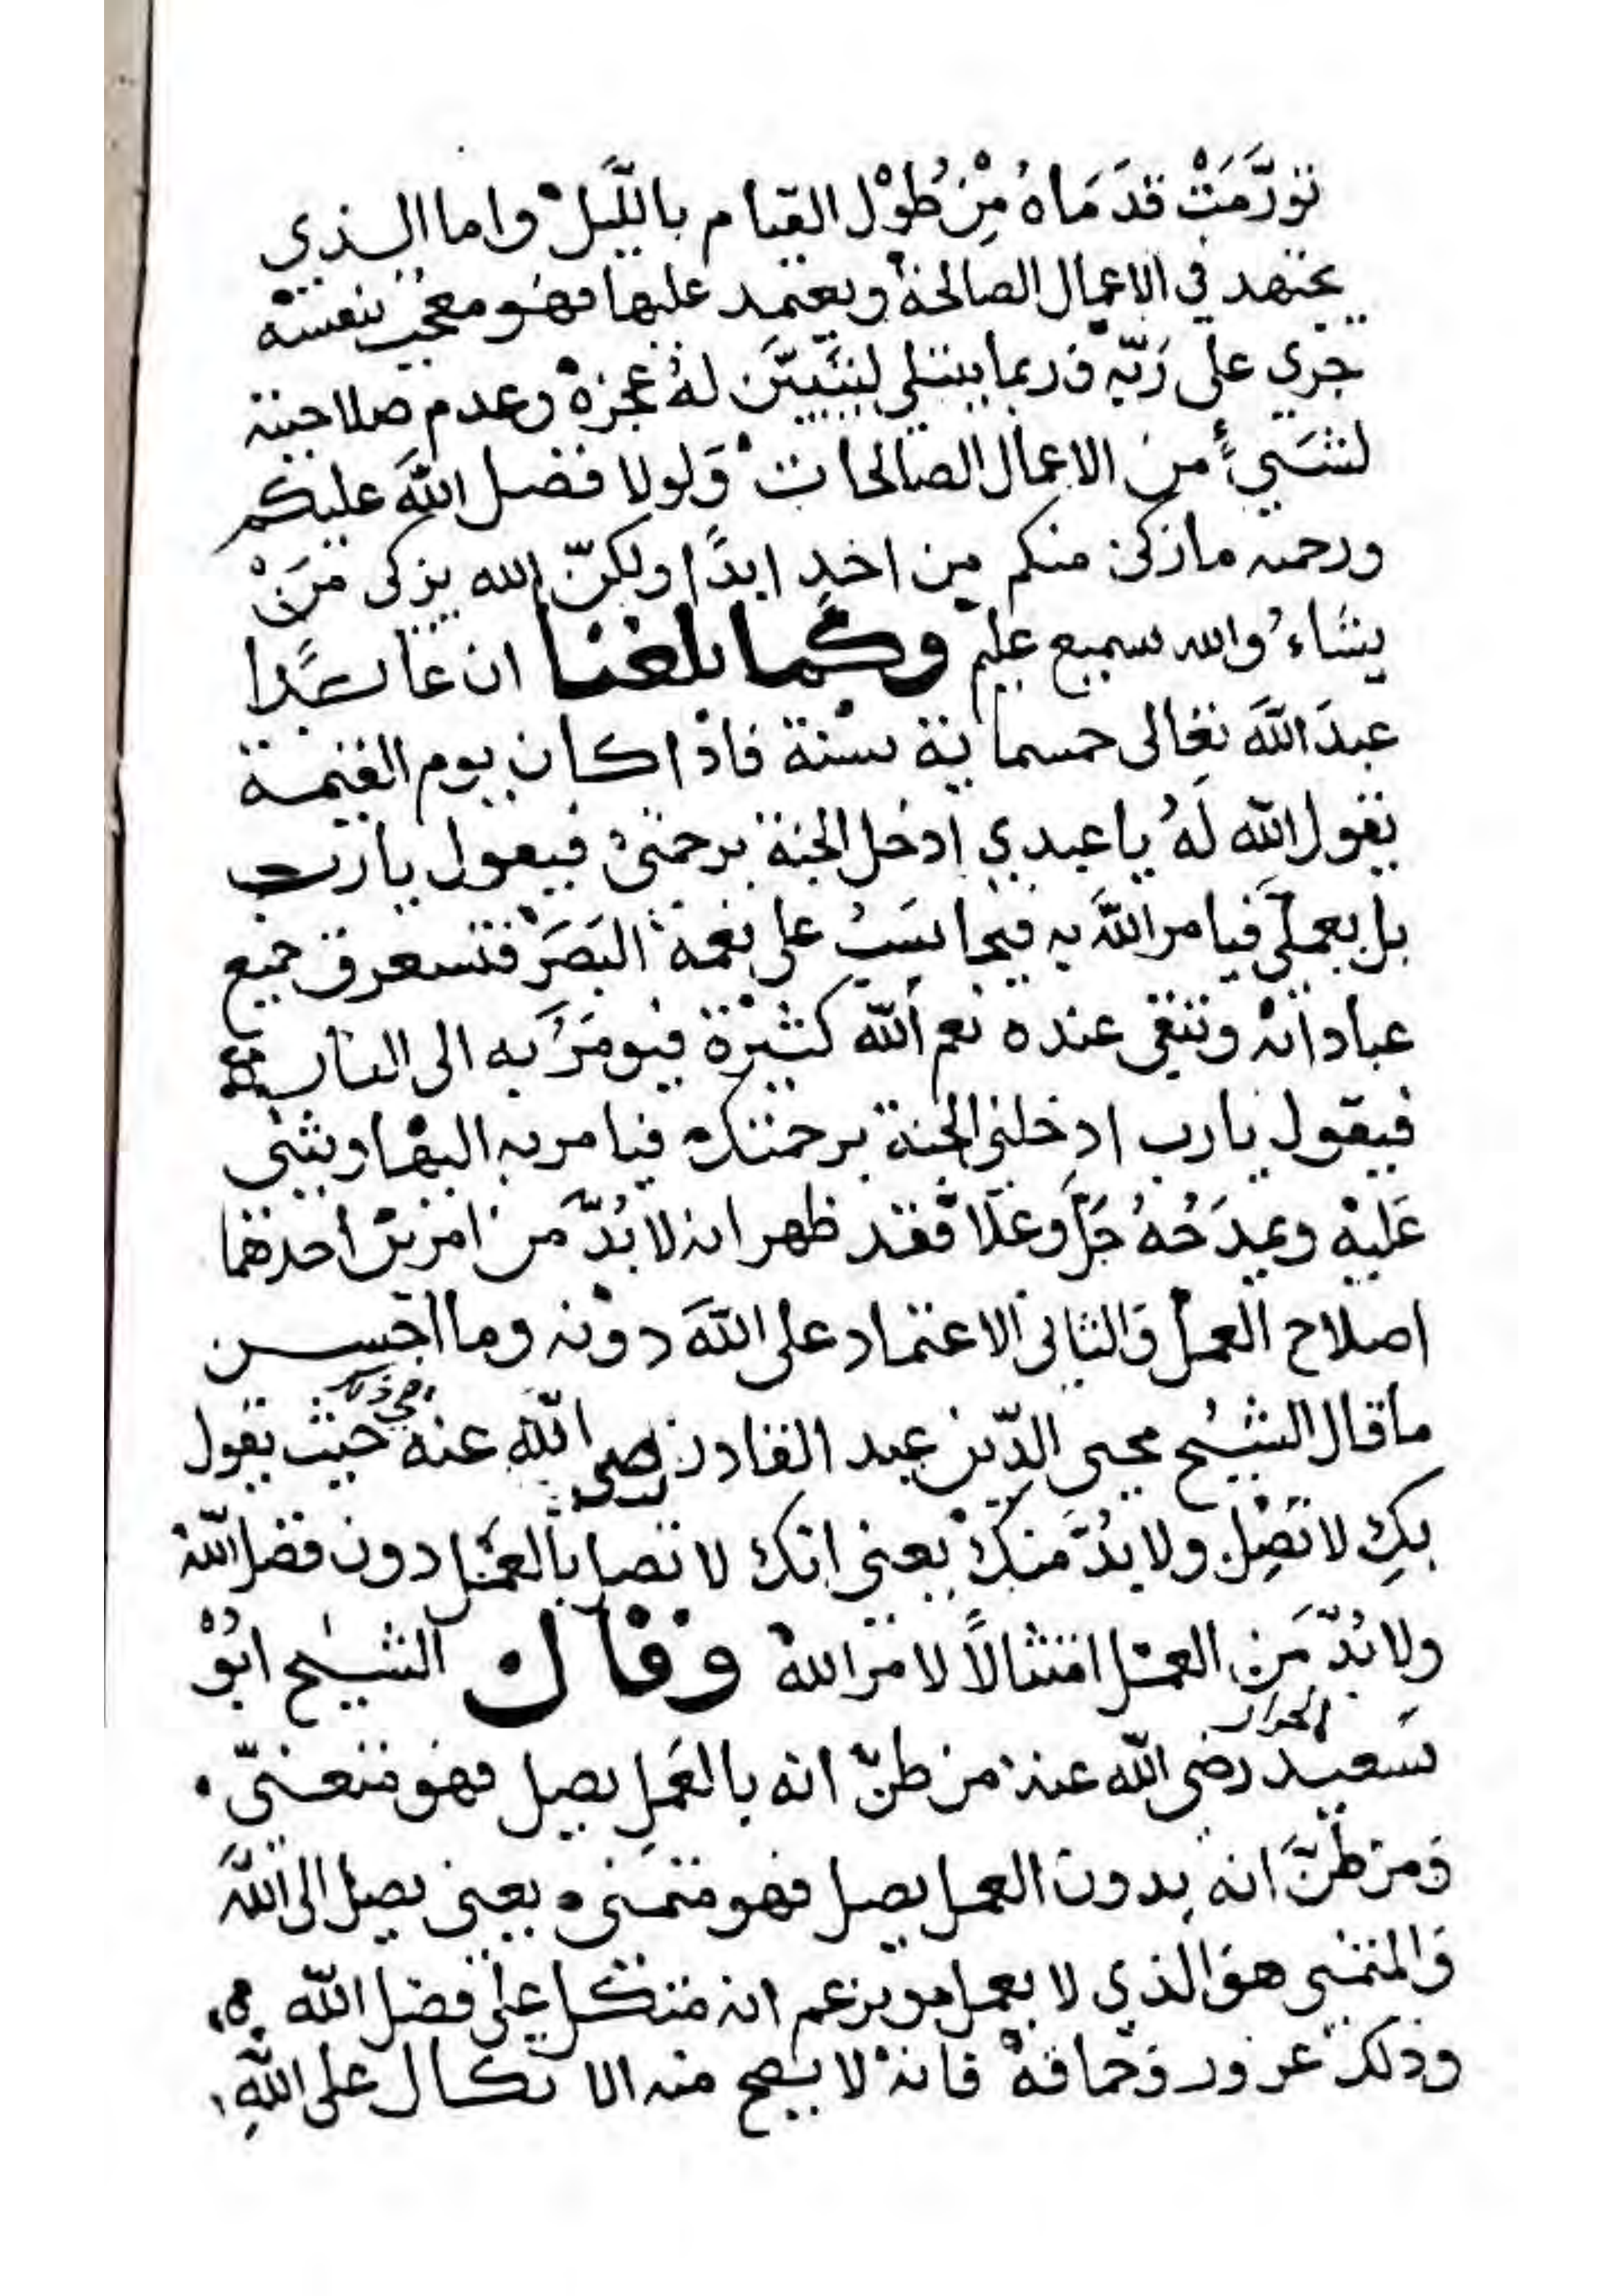 تورَّمَتْ قدَمَاهُ مِنْ طُوْل القيام بالَّليلْ واما الذي
يجتهد في الاعمال الصالحة ويعتمد عليها فهو معجب بنفسه
جري على رَبّه فربما يبتلي ليَتَبيَّن لهُ عجزهْ وعدم صلاحيته
لشَيءٍ من الاعمال الصالحات وَلولا فضل اللّهَ عليكم
ورحمته مازكى منكم من احدٍ ابدًا ولكنّ الله يزكى مَنْ
يشاءُ والله سميع عليم وكما بلغنا ان عابدًا
عبدَ اللّهَ تعالى خمسماية سنة فاذا كان يوم القيمة
يقول اللّه لَهُ يا عبدي ادخل الجنة برحمتي فيقول يارب
بل بعملي فيامر اللّهَ به فيحاسَبُ على نعمة البَصَرْ فتستغرق جميع
عباداته وتبقى عنده نعم اللّه كثيْرة فيومَرُ به الى النار
فيقول يارب ادخلني الجنة برحمتك فيامر به اليها ويثنى
عَليْهِ ويمدَحُهُ جَلَّ وعَلا فقد ظهر انه لا بُدَّ مَن امريْن احدهما
اصلاح العمل والثاني الاعتماد على اللّهَ دوْنه وما احسن
ماقال الشيْخ محيى الدّين عبد القادر رضي اللّهِ عنه في ذلك حيث يقول
بكِ لا تَصِل ولا بُدَّ منكْ يعنى انك لا تصل بالعمَل دون فضل اللّه
ولا بُدّ مَن العمل امتثالًا لامر اللهْ وقال الشيخ ابُوْ
سَعيد الخراز رضي اللّه عنه من ظنّ انه بالعَمِل يصل فهو متعنّي
وَمن ظنَّ انه بدون العمل يصل فهو متمنى يعنى يصل الى اللّهَ
وَالمتمنى هوَ الذي لا يعمل ويزعم انه متكل على فضل اللّه
وذلك غرور وَحماقهْ فانهْ لا يصح منه الاتكال على اللّهِ